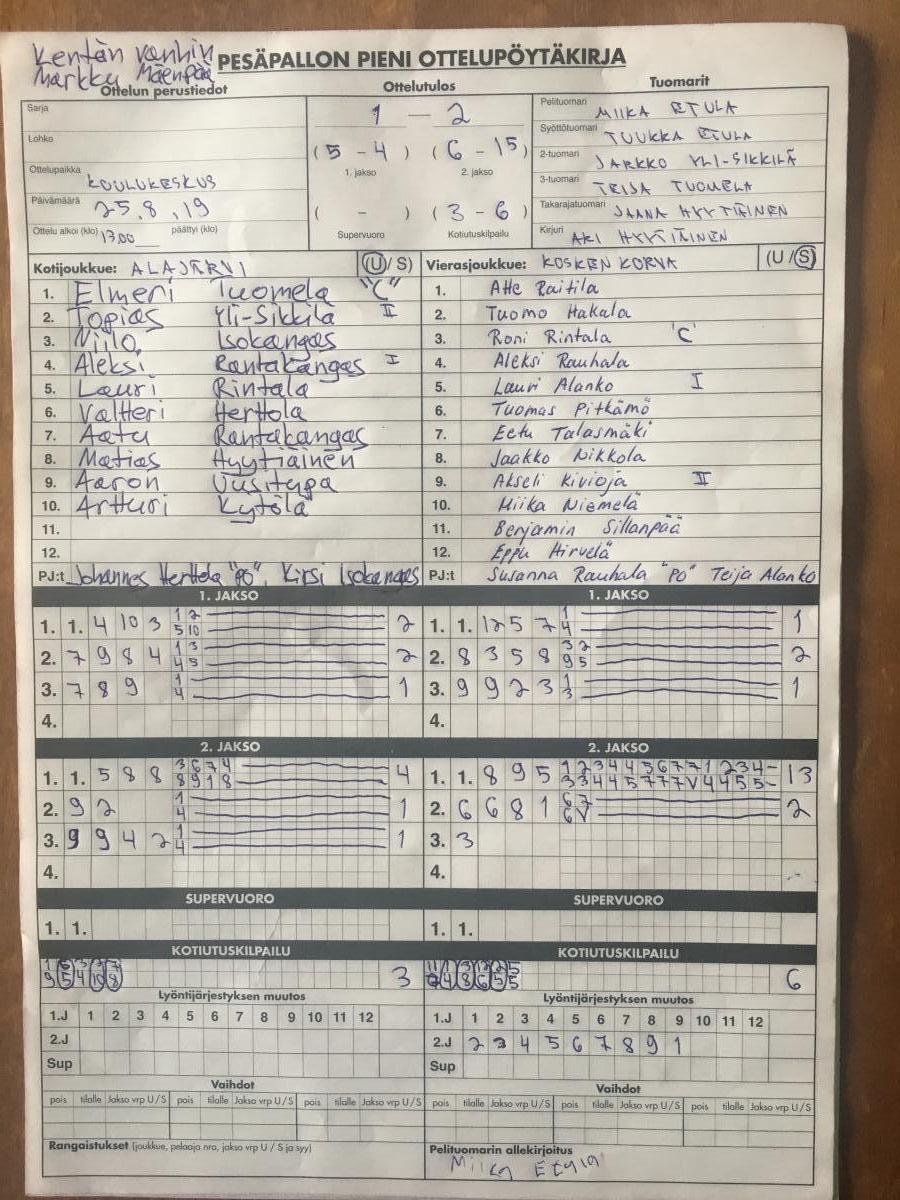 Kentän vanhin
Markku Mäenpää
PESÄPALLON PIENI OTTELUPÖYTÄKIRJA
Ottelun perustiedot
Ottelutulos
Tuomarit
Sarja
Lohko
Ottelupaikka KOULUKESKUS
Päivämäärä 25.8.19
Ottelu alkoi (klo) 13.00 päättyi (klo)
1 — 2
(5 - 4) (6 - 15)
1. jakso 2. jakso
( - ) (3 - 6)
Supervuoro Kotiutuskilpailu
Pelituomari MIIKA ETULA
Syöttötuomari TUUKKA ETULA
2-tuomari JARKKO YLI-SIKKILÄ
3-tuomari TEIJA TUOMELA
Takarajatuomari JAANA HYYTIÄINEN
Kirjuri AKI HYYTIÄINEN
Kotijoukkue: ALAJÄRVI (U/S)
1. Elmeri Tuomela "C"
2. Topias Yli-Sikkilä II
3. Niilo Isokangas
4. Aleksi Rantakangas I
5. Lauri Rintala
6. Valtteri Herttola
7. Aatu Rantakangas
8. Matias Hyytiäinen
9. Aaron Uusitupa
10. Artturi Kytölä
11.
12.
PJ:t Johannes Herttola "PO", Kirsi Isokangas
Vierasjoukkue: KOSKENKORVA (U/S)
1. Atte Raitila
2. Tuomo Hakala
3. Roni Rintala 'C'
4. Aleksi Rauhala
5. Lauri Alanko I
6. Tuomas Pitkämö
7. Eetu Talasmäki
8. Jaakko Nikkola
9. Akseli Kivioja II
10. Miika Niemelä
11. Benjamin Sillanpää
12. Eppu Hirvelä
PJ:t Susanna Rauhala "PO" Teija Alanko
1. JAKSO
1. 1. 4 10 3 1 2 2
5 10
2. 7 9 8 4 1 3 2
4 5
3. 7 8 9 1 1
4
4.
1. JAKSO
1. 1. 12 5 7 1 1
4
2. 8 3 5 8 3 2 2
9 5
3. 9 9 2 3 1 1
3
4.
2. JAKSO
1. 1. 5 8 8 3 6 7 4 4
8 9 1 8
2. 9 2 1 1
4
3. 9 9 4 2 1 1
4
4.
2. JAKSO
1. 1. 8 9 5 1 2 3 4 4 5 6 7 7 1 2 3 4 - 13
3 3 4 4 5 7 7 7 V 4 4 5 5 -
2. 6 6 8 1 6 7 2
6 V
3. 3
4.
SUPERVUORO
1. 1.
SUPERVUORO
1. 1.
KOTIUTUSKILPAILU
9 5 4 10 8 3
KOTIUTUSKILPAILU
4 8 6 5 5 6
Lyöntijärjestyksen muutos
1.J 1 2 3 4 5 6 7 8 9 10 11 12
2.J
Sup
Lyöntijärjestyksen muutos
1.J 1 2 3 4 5 6 7 8 9 10 11 12
2.J 2 3 4 5 6 7 8 9 1
Sup
Vaihdot
pois tilalle Jakso vrp U/S pois tilalle Jakso vrp U/S pois tilalle Jakso vrp U/S
Vaihdot
pois tilalle Jakso vrp U/S pois tilalle Jakso vrp U/S pois tilalle Jakso vrp U/S
Rangaistukset (joukkue, pelaaja nro, jakso vrp U / S ja syy)
Pelituomarin allekirjoitus
Miika Etula